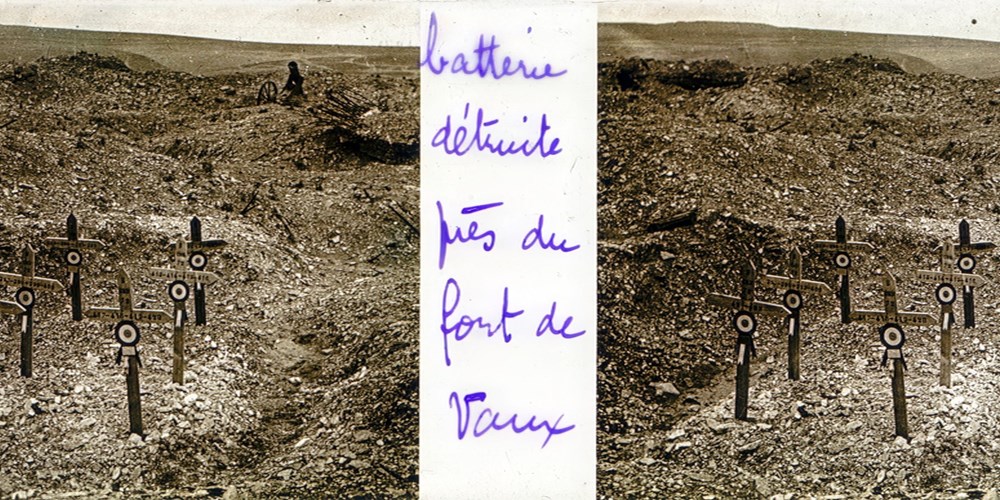 batterie
détruite
près du
fort de
Vaux